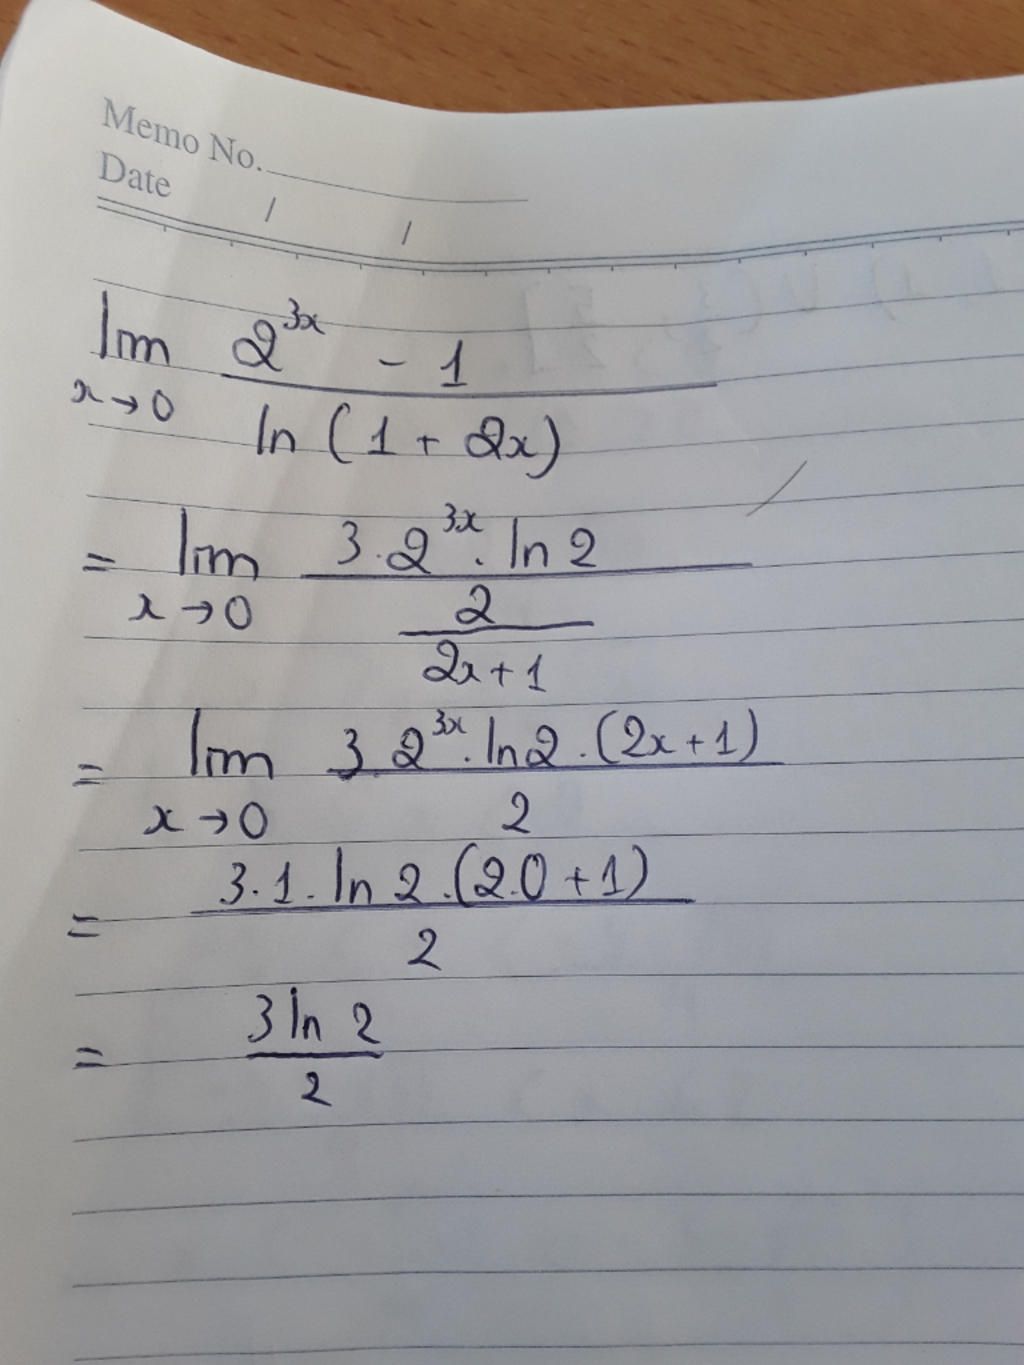 Memo No.
Date / /
lim 2^{3x} - 1
x→0 ln (1 + 2x)
= lim 3.2^{3x}. ln 2
x→0 2
2x+1
= lim 3.2^{3x}. ln2 .(2x+1)
x→0 2
= 3.1. ln 2 .(2.0 +1)
2
= 3 ln 2
2